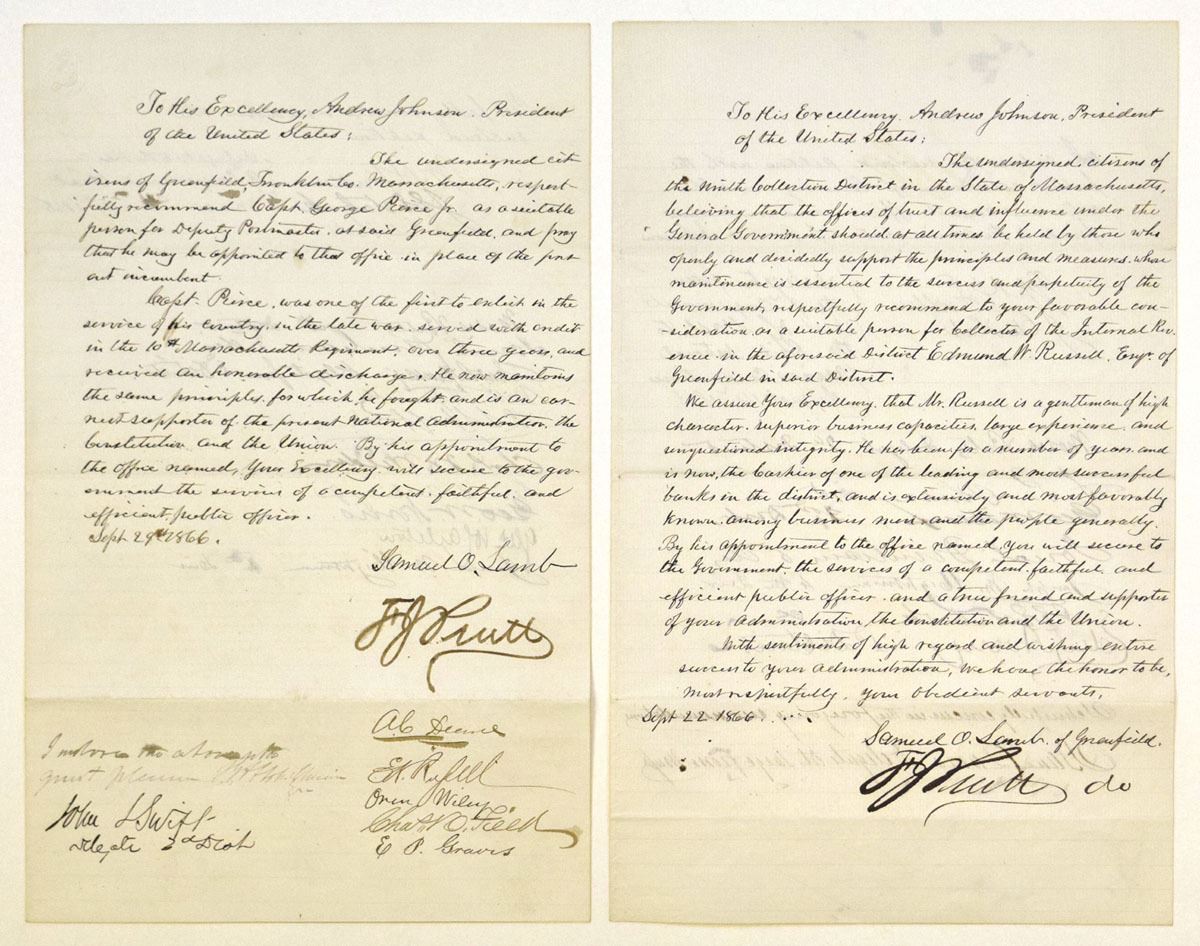 To His Excellency, Andrew Johnson. President
of the United States;
The undersigned cit-
izens of Greenfield, Franklin Co. Massachusetts, respect-
fully recommend Capt. George Pierce Jr. as a suitable
person for Deputy Postmaster, at said Greenfield, and pray
that he may be appointed to that office in place of the pres-
ent incumbent.
Capt. Pierce, was one of the first to enlist in the
service of his country, in the late war, served with credit
in the 10th Massachusetts Regiment, over three years, and
received an honorable discharge. He now maintains
the same principles, for which he fought, and is an ear-
nest supporter of the present National Administration, the
Constitution and the Union. By his appointment to
the office named, Your Excellency will secure to the gov-
ernment the services of a competent, faithful, and
efficient, public officer.
Sept 29th 1866.
Samuel O. Lamb
F J Pratt
A C Deane
E. W. Russell
Oren Wiley
Chas. H. Field
E P. Graves
I
John L Swift
Delegate 3d Dist
To His Excellency, Andrew Johnson, President
of the United States;
The undersigned, citizens of
the Ninth Collection District in the State of Massachusetts,
believing that the offices of trust and influence under the
General Government should at all times be held by those who
openly and decidedly support the principles and measures, whose
maintenance is essential to the success and perpetuity of the
Government, respectfully recommend to your favorable con-
-sideration, as a suitable person for Collector of the Internal Rev-
enue in the aforesaid District Edmund W. Russell, Esqr. of
Greenfield in said District.
We assure Your Excellency, that Mr. Russell is a gentleman of high
character, superior business capacities, large experience, and
unquestioned integrity. He has been for a number of years, and
is now, the Cashier of one of the leading and most successful
banks in the district, and is extensively and most favorably
known, among business men and the people generally.
By his appointment to the office named, you will secure to
the Government, the services of a competent, faithful, and
efficient public officer, and a true friend and supporter
of your Administration, the Constitution and the Union.
With sentiments of high regard and wishing entire
success to your Administration, we have the honor to be,
most respectfully, your obedient servants,
Sept 22 1866
Samuel O. Lamb. of Greenfield.
F J Pratt do